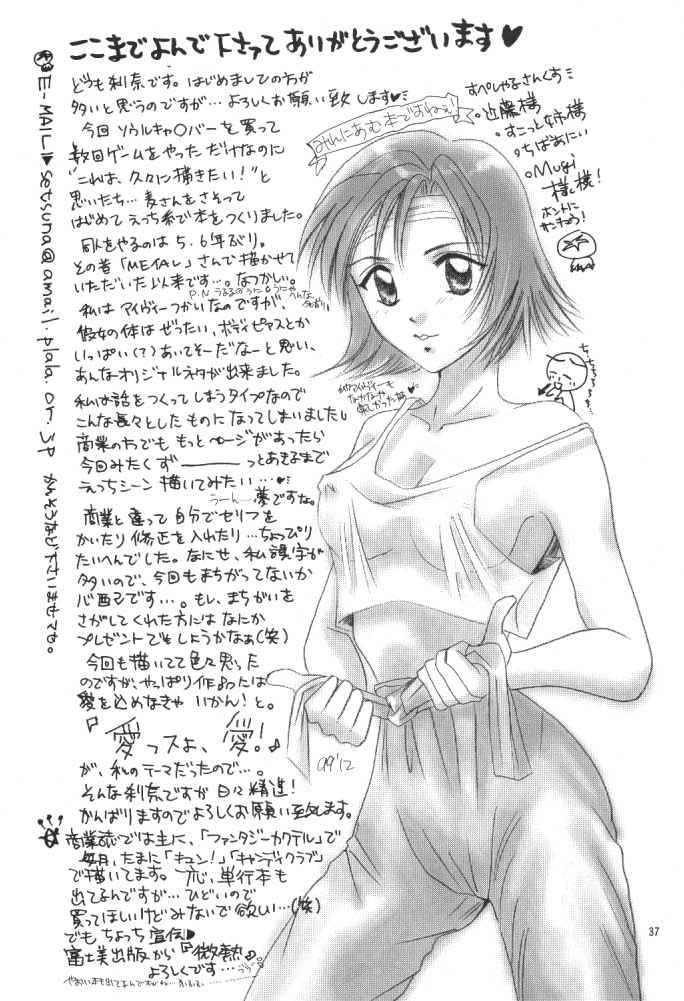 ここまでよんで下さってありがとうございます♥
どうも刹奈です。はじめましての方が
多いと思うのですが…よろしくお願い致します♥
今回ソウルキャ○バーを買って
数回ゲームをやっただけなのに
"これは、久々に描きたい!"と
思いたち…麦さんをさそって
はじめてえっち系で本をつくりました。
同人をやるのは5.6年ぶり。
その昔「METAL」さんで描かせて
いただいた以来です…。なつかしい。
私はアイヴィーつかいなのですが、
彼女の体はぜったい、ボディピアスとか
いっぱい(?)あいてそーだなーと思い、
あんなオリジナルネタが出来ました。
私は話をつくってしまうタイプなので
こんな長々としたものになってしまいました。
商業の方でももっとページがあったら
今回みたくず――っとあきるまで
えっちシーン描いてみたい…♥
うーん…夢ですな。
商業と違って自分でセリフを
かいたり修正を入れたり…ちょっぴり
たいへんでした。なにせ、私誤字が
多いので、今回もまちがってないか
心配です…。もし、まちがいを
さがしてくれた方にはなにか
プレゼントでもしようかなぁ(笑)
今回も描いてて色々思った
のですが、やっぱり作品は
愛を込めなきゃいかん!と。
『愛っスよ、愛!』
が、私のテーマだったので…。
そんな刹奈ですが日々精進!
がんばりますのでよろしくお願い致します。
商業誌では主に、「ファンタジーカクテル」で
毎月、たまに「キュン!」「キャンディクラブ」
で描いてます。一応、単行本も
出てるんですが…ひどいので
買ってほしいけどみないで欲しい…(笑)
でもちょっち宣伝♥
富士美出版から『微熱』
よろしくです…
E-MAIL▶setsuna@amail.plala.or.jp
みんにあむ本ですねぇ!
すぺしゃるさんくす
近藤様
すこっと姉様
ちばあにい
Mugi様様!
ホントに
99'12
37